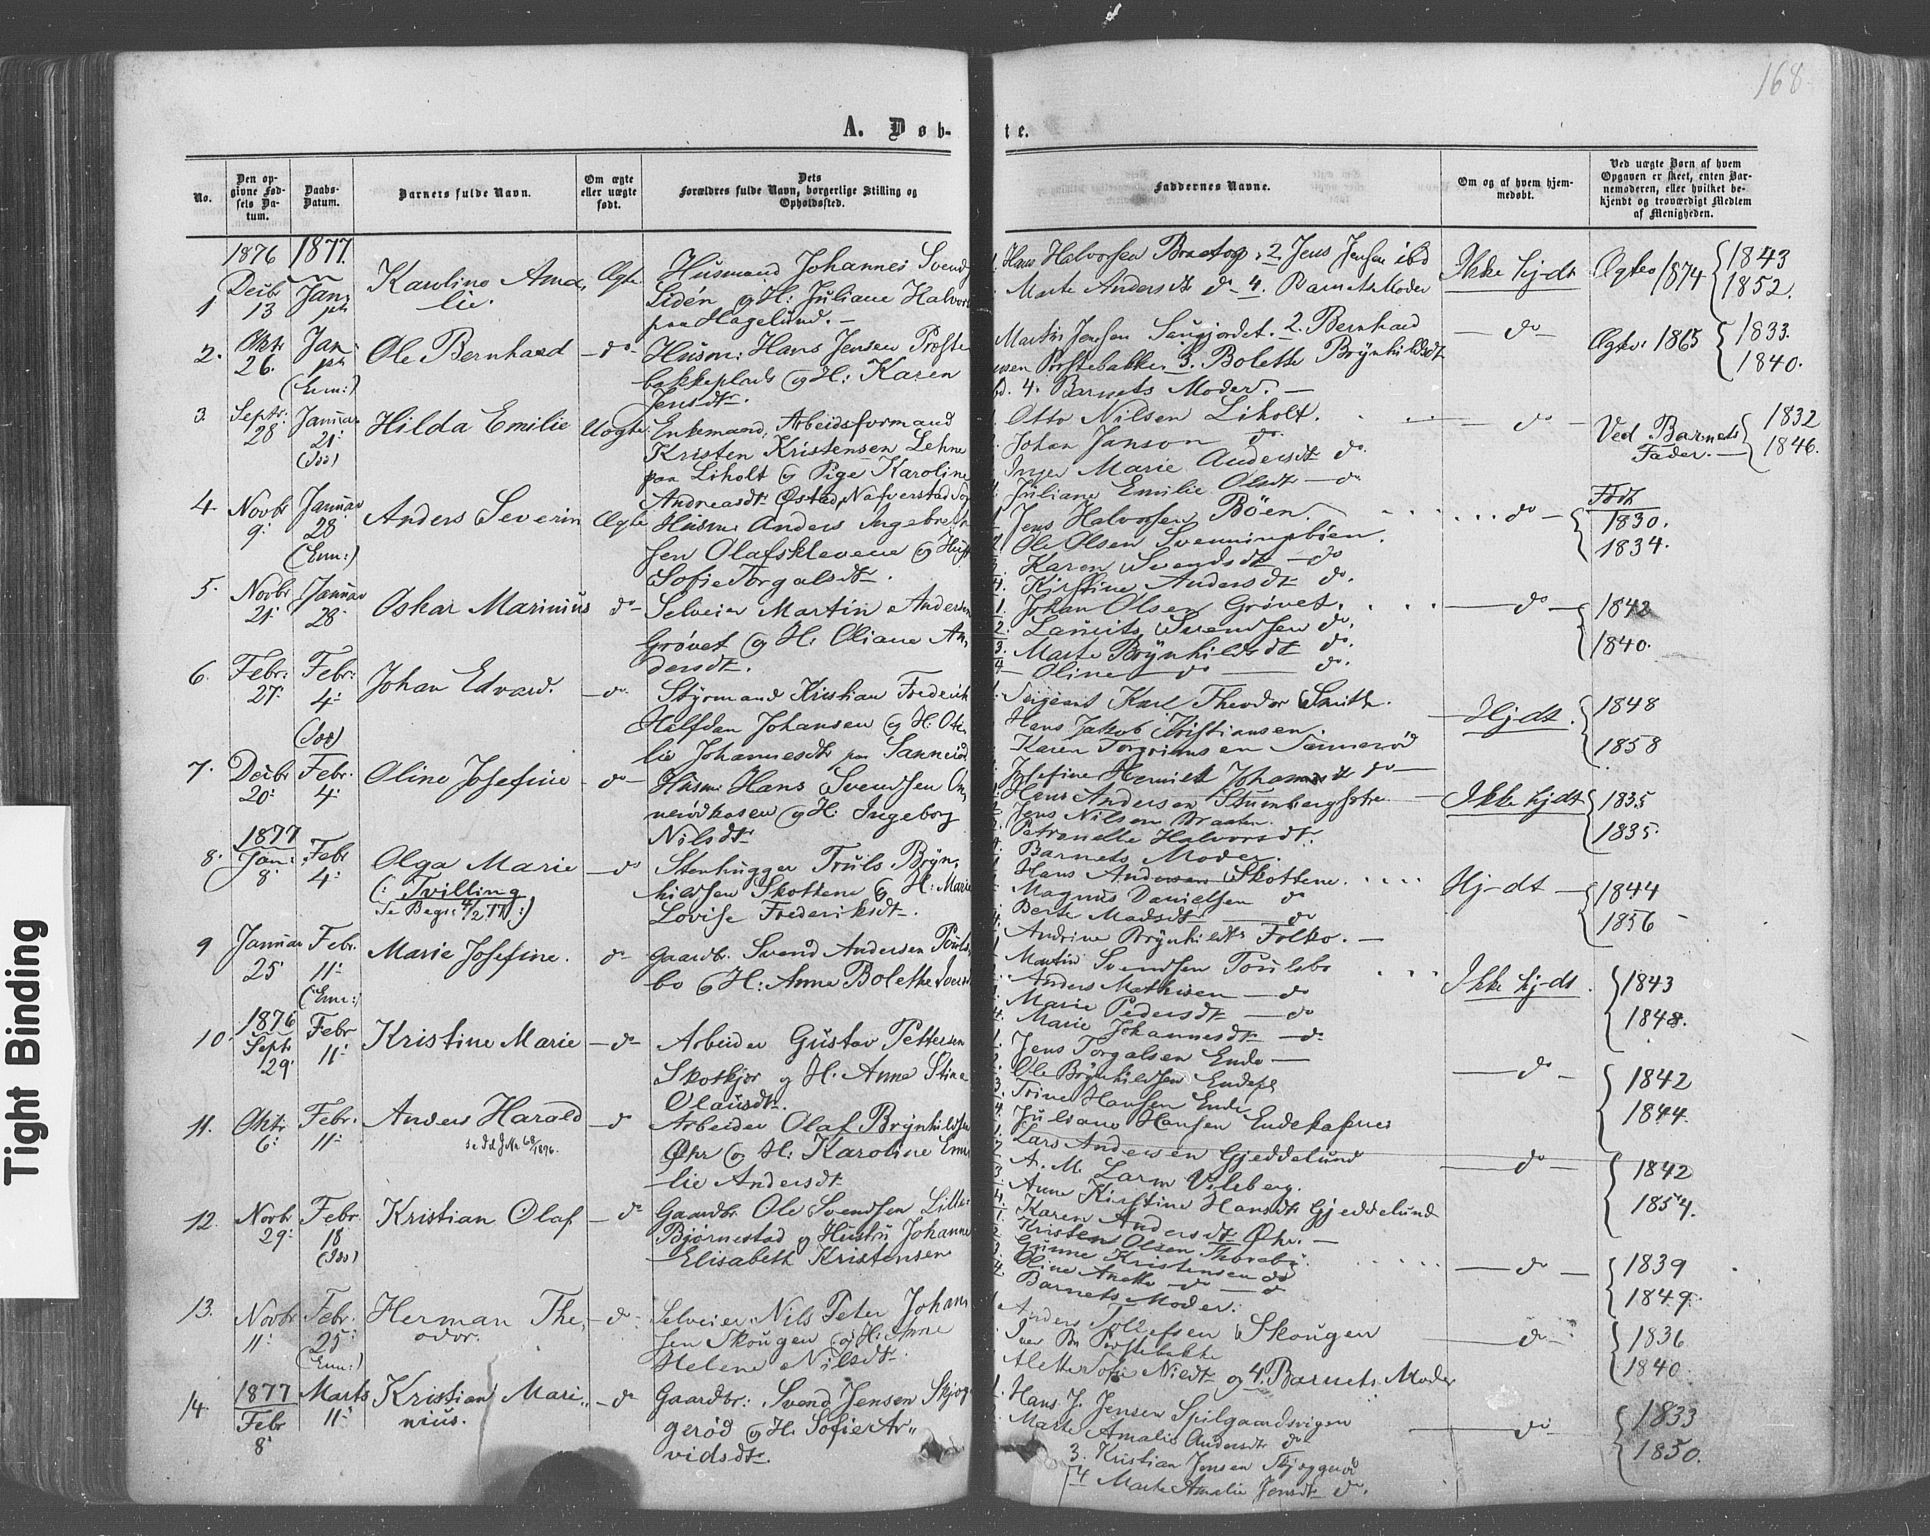 168
A. Døb-
te.
No.
Den op-
givne Fød-
sels Da-
tum.
Daabs-
Datum.
Barnets fulde Navn.
Om ægte
eller uægte
født.
Dets
Forældres fulde Navn, borgerlige Stilling og
Opholdssted.
Faddernes Navne.
Om og af hvem hjem-
medøbt.
Ved uægte Børn af hvem
Opgaven er skeet, enten Bar-
nemoderen, eller hvilket be-
kjendt og troværdigt Medlem
af Menigheden.
1876 1877
1 Decbr 13 Jan. Karoline Ama-
lie. Ægte Husmand Johannes Svends
Lidén og H: Juliane Halvors
paa Hagelund. —
Hans Halvorsen Braatop, 2 Jens Jensen ibd
Marte Andersdt do 4. Barnets Moder
Ikke hj-dt Ægtev 1874 { 1843
1852.
2. Oktr 26. Jan. (Enm:) Ole Bernhard — do — Husm: Hans Jensen Præste
bakkeplads og H: Karen
Jensdt.
Martin Jensen Saugjordet. 2. Bernhard
Jensen Præstebakke 3. Bolette Brynhildsdt
ibd. 4. Barnets Moder. —
— do — Ægtev. 1865 { 1833.
1840.
3. Septr: 28 Januar 21. Hilda Emilie Uægte Enkemand, Arbeidsformand
Kristen Kristensen Lehne
paa Liholt og Pige Karoline
Andreasdt Østad, Nafverstad Sogn
Otto Nilsen Liholt.
Johan Janson do.
Inger Marie Andersdt do.
Juliane Emilie Olsdt — do
— do — Ved Barnets
Fader. — { 1832
1846.
4. Novbr 9. Januar 28 (Enm:) Anders Severin Ægte Husm: Anders Ingebret-
sen Olafskleven og Hust
Sofie Torgalsdt.
Jens Halvorsen Bøen.
Ole Olsen Svenningsbøen.
Karen Svendsdt — do
4. Kjirstine Andersdt do.
do — Født
{ 1830.
1834.
5. Novbr 21. Januar 28. Oskar Marinius do — Selveier Martin Andersen
Grøvet og H. Oliane An-
dersdt.
1. Johan Olsen Grøvet.
2. Lauritz Svendsen do.
3. Marte Brynhildsdt do.
4 — Oline — do — do.
— do — { 1842
1840.
6. Febr: 27. Febr: 4. Johan Edvard. — do. Styrmand Kristian Frederik
Halfdan Johansen og H. Ot
lie Johannesdt paa Sannerød
Serjeant Karl Theodor Smith.
Hans Jakob Kristiansen.
Karen Torgrimsen Sannerød
Josefine Henriet Johannesdt do —
Hj-dt. { 1848
1858
7. Decbr 20. Febr. 4. Oline Josefine — do — Husm: Hans Svendsen
og H. Ingeborg
Nilsdt
Hans Andersen
Jens Nilsen Braaten.
Petronelle Halvorsdt.
Barnets Moder.
Ikke hj-dt { 1835
1835.
8. 1877 Jan: 8. Febr 4. Olga Marie
(: Tvilling
Se Begr: 4/2 77 :) — do Stenhugger Truls Bryn-
hildsen Skottene og H: Marie
Lovise Frederiksdt.
Hans Andersen Skottene.
Magnus Danielsen do
Berte Madsdt — do
Andrine Brynhildts Folko. —
Hj-dt — { 1844
1856
9 Januar 25 Febr. 11. (Enm:) Marie Josefine. do — Gaardbr. Svend Andersen Pouls-
bo og H: Anne Bolethe Iversd
Martin Svendsen Poulsbo
Anders Mathisen — do
Marie Pedersdt — do
4. Marie Johannesdt — do
Ikke hj-dt. { 1843
1848.
10. 1876 Septr 29. Febr 11. Kristine Marie — do — Arbeider Gustav Pettersen
Skotkjær og H. Anne Stina
Olausdt.
Jens Torgalsen Ende —
Ole Brynhildsen Endepl
3. Trine Hansen Ende
4. Juliane Hansen Endekasnes
— do — { 1842
1844.
11. Oktr 6. Febr. 11. Anders Harald — do Arbeider Olaf Brynhildsen
Øhr og H: Karoline Emi-
lie Andersdt
Lars Andersen Gjeddelund
A. M. Larm Vileberg.
Anne Kirstine Hansdt Gjeddelund
Karen Andersdt Øhr. —
— do — { 1842
1854.
12. Novbr 29. Febr 18 Kristian Olaf — do Gaardbr Ole Svendsen Lille-
Bjørnestad og Hustru Johanne
Elisabeth Kristensen
Kristen Olsen Thorebø.
Gunne Kristensen do
Oline Anette — do — do
Barnets Moder.
— do — { 1839
1849.
13. Novbr 11. Febr. 25. (Enm:) Herman The-
odor. — do — Selveier: Nils Peter Johan-
sen Skougen og H: Anne
Helene Nilsdt.
Anders Tollefsen Skougen
Iver Præstebakke
Alette Sofie Nilsdt og 4. Barnets Moder
— do — { 1836
1840.
14. 1877 Febr 8. Marts 11. Kristian Mari-
nius. — do Gaardbr: Svend Jensen Skjøg-
gerød og H. Sofie Ar-
vidsdt.
Hans J. Jensen Spilgaardsvigen
Marte Amalie Andersdt do
3. Kristian Jensen Skjøggerød
4 Marte Amalie Jensdt do.
— do — { 1833
1850.
Tight Binding